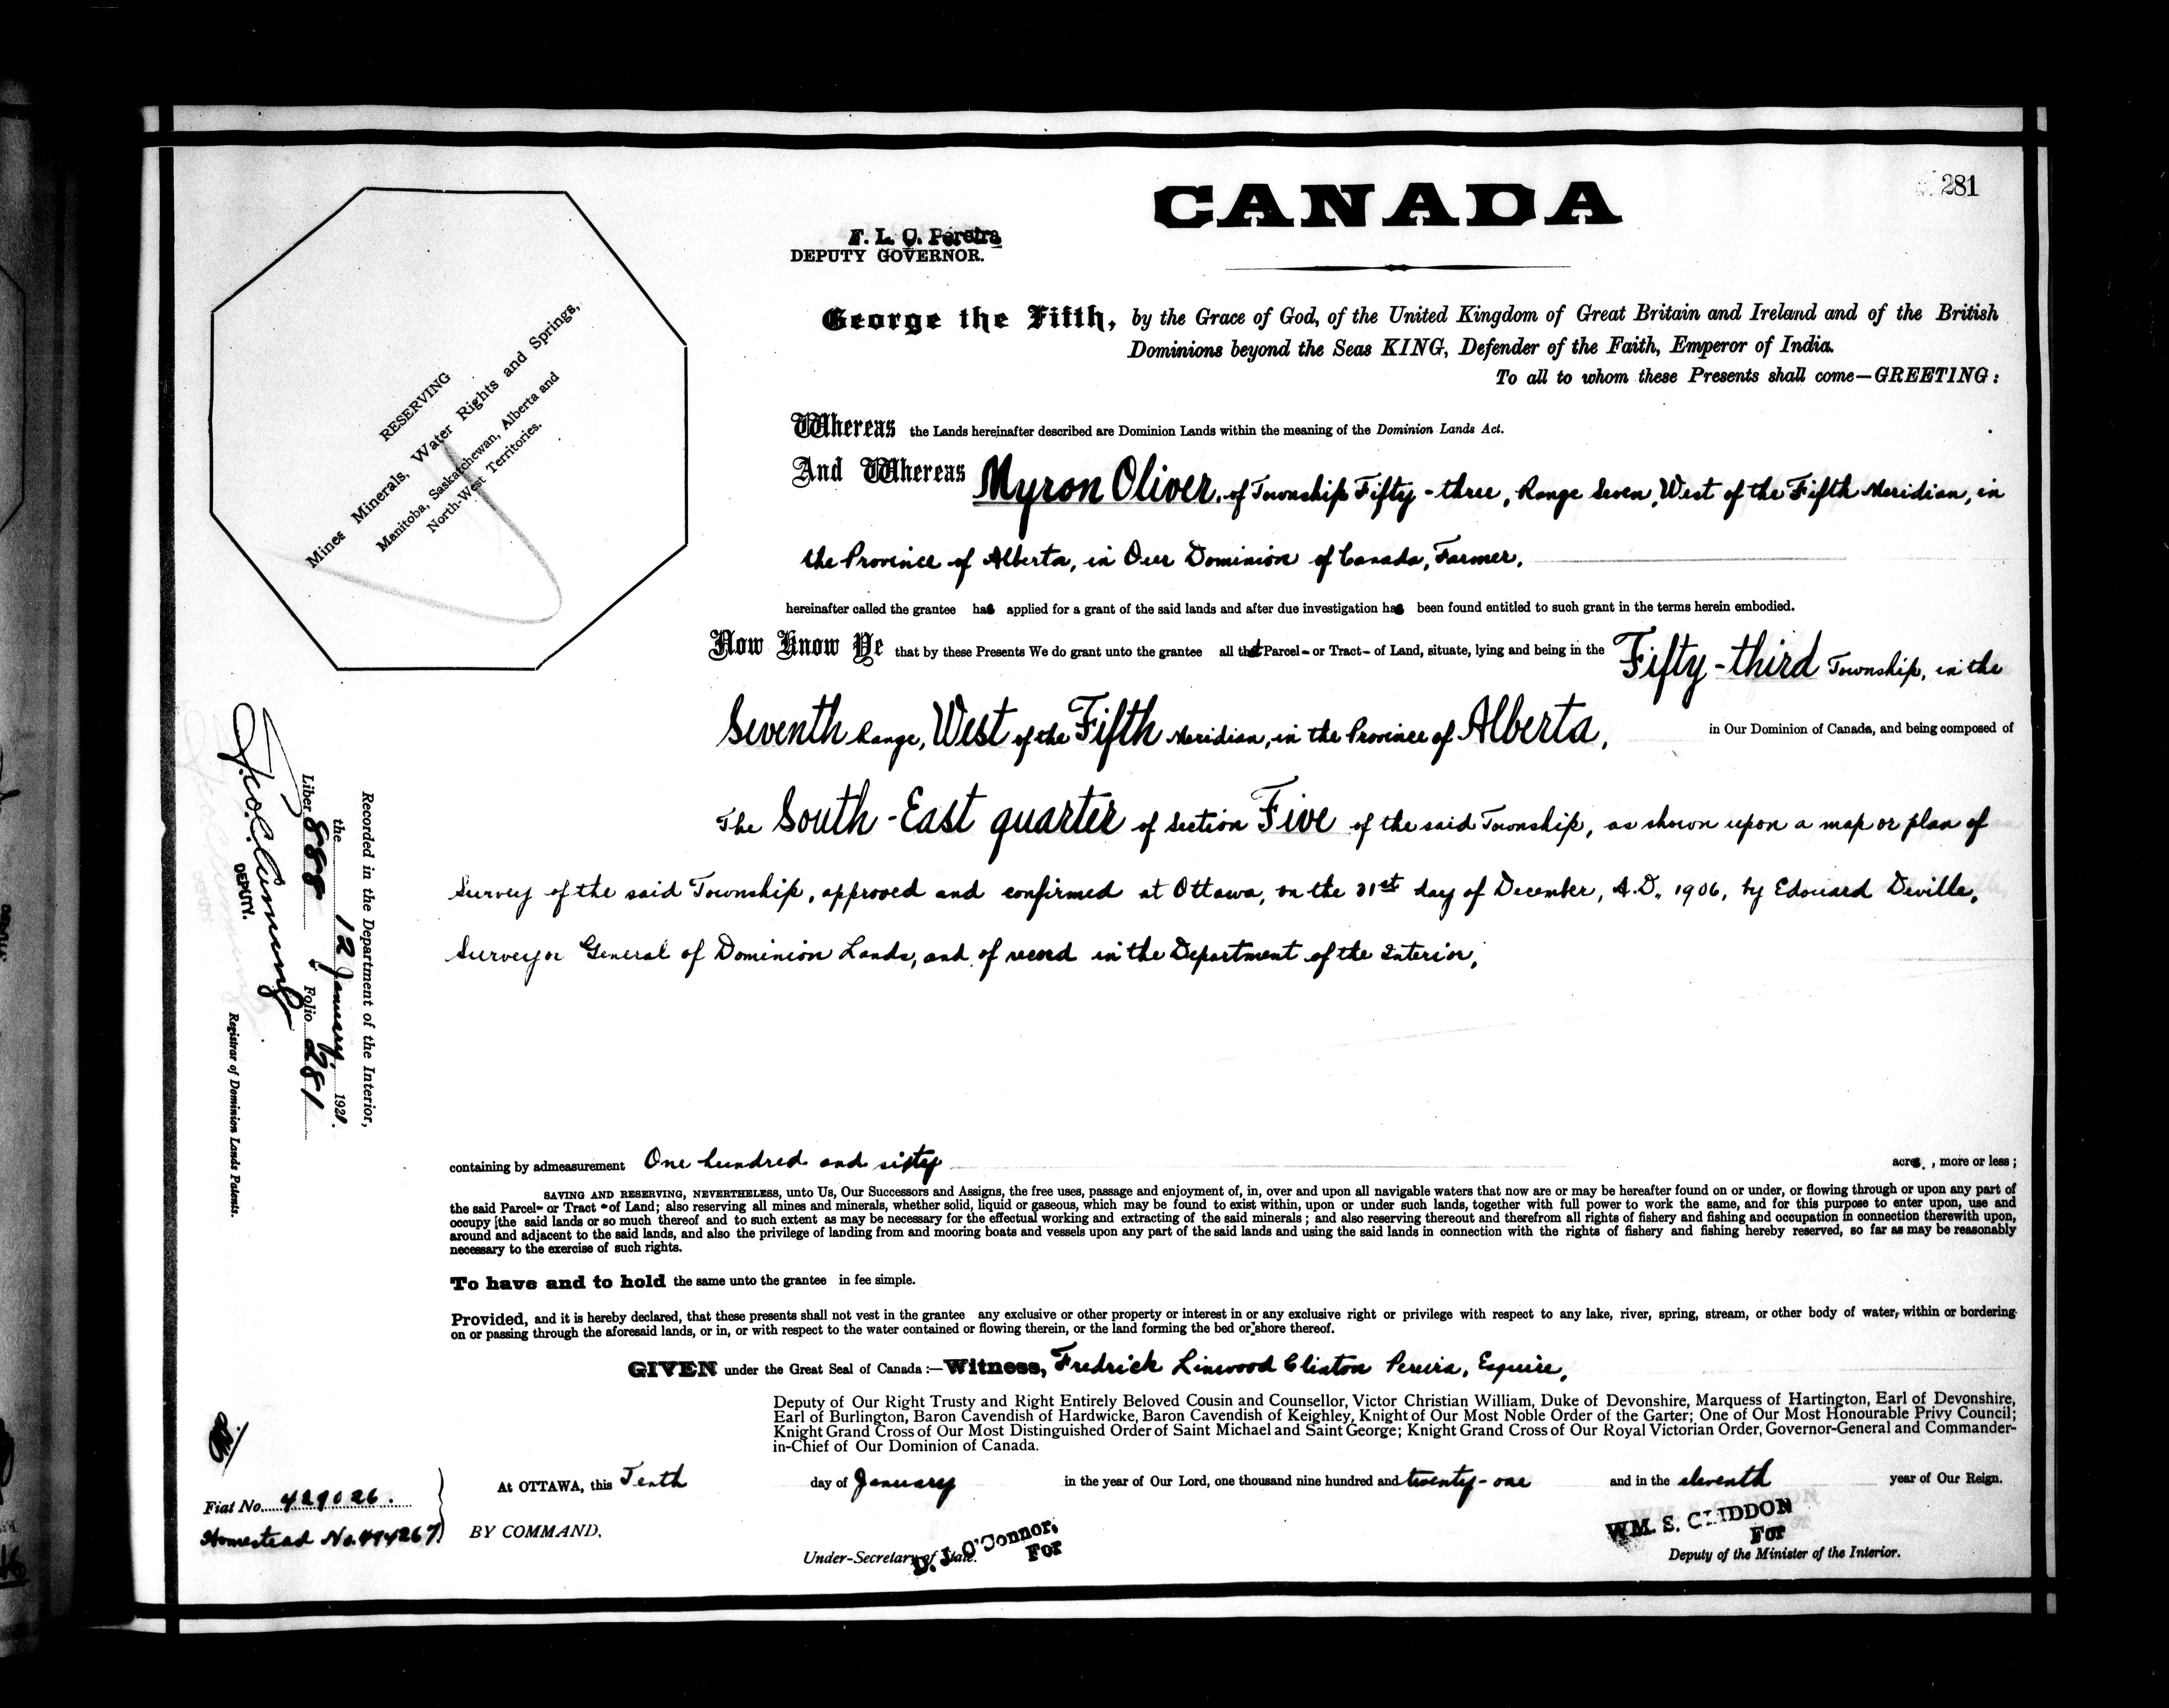 281
CANADA
F. L. C. Pereira
DEPUTY GOVERNOR.
George the Fifth, by the Grace of God, of the United Kingdom of Great Britain and Ireland and of the British
Dominions beyond the Seas KING, Defender of the Faith, Emperor of India.
To all to whom these Presents shall come—GREETING:
RESERVING
Mines Minerals, Water Rights and Springs,
Manitoba, Saskatchewan, Alberta and
North-West Territories.
Whereas the Lands hereinafter described are Dominion Lands within the meaning of the Dominion Lands Act.
And Whereas Myron Oliver, of Township Fifty-three, Range Seven, West of the Fifth Meridian, in
the Province of Alberta, in Our Dominion of Canada, Farmer,
hereinafter called the grantee has applied for a grant of the said lands and after due investigation has been found entitled to such grant in the terms herein embodied.
Now Know Ye that by these Presents We do grant unto the grantee all that Parcel- or Tract- of Land, situate, lying and being in the Fifty-third Township, in the
Seventh Range, West of the Fifth Meridian, in the Province of Alberta, in Our Dominion of Canada, and being composed of
The South-East quarter of Section Five of the said Township, as shown upon a map or plan of
Survey of the said Township, approved and confirmed at Ottawa, on the 31st day of December, A.D. 1906, by Edouard Deville,
Surveyor General of Dominion Lands, and of record in the Department of the Interior,
Recorded in the Department of the Interior,
the 12 January, 1921.
Liber 888 Folio 281
Geo. C. Cumming
DEPUTY. Registrar of Dominion Lands Patents.
containing by admeasurement One hundred and sixty acres, more or less;
SAVING AND RESERVING, NEVERTHELESS, unto Us, Our Successors and Assigns, the free uses, passage and enjoyment of, in, over and upon all navigable waters that now are or may be hereafter found on or under, or flowing through or upon any part of
the said Parcel- or Tract - of Land; also reserving all mines and minerals, whether solid, liquid or gaseous, which may be found to exist within, upon or under such lands, together with full power to work the same, and for this purpose to enter upon, use and
occupy the said lands or so much thereof and to such extent as may be necessary for the effectual working and extracting of the said minerals; and also reserving thereout and therefrom all rights of fishery and fishing and occupation in connection therewith upon,
around and adjacent to the said lands, and also the privilege of landing from and mooring boats and vessels upon any part of the said lands and using the said lands in connection with the rights of fishery and fishing hereby reserved, so far as may be reasonably
necessary to the exercise of such rights.
To have and to hold the same unto the grantee in fee simple.
Provided, and it is hereby declared, that these presents shall not vest in the grantee any exclusive or other property or interest in or any exclusive right or privilege with respect to any lake, river, spring, stream, or other body of water, within or bordering
on or passing through the aforesaid lands, or in, or with respect to the water contained or flowing therein, or the land forming the bed or shore thereof.
GIVEN under the Great Seal of Canada:—Witness, Fredrick Linwood Clinton Pereira, Esquire,
Deputy of Our Right Trusty and Right Entirely Beloved Cousin and Counsellor, Victor Christian William, Duke of Devonshire, Marquess of Hartington, Earl of Devonshire,
Earl of Burlington, Baron Cavendish of Hardwicke, Baron Cavendish of Keighley, Knight of Our Most Noble Order of the Garter; One of Our Most Honourable Privy Council;
Knight Grand Cross of Our Most Distinguished Order of Saint Michael and Saint George; Knight Grand Cross of Our Royal Victorian Order, Governor-General and Commander-
in-Chief of Our Dominion of Canada.
At OTTAWA, this Tenth day of January in the year of Our Lord, one thousand nine hundred and twenty-one and in the eleventh year of Our Reign.
Fiat No. 429026.
Homestead No. 494267
BY COMMAND,
D. J. O'Connor,
For
Under-Secretary of State.
WM. S. GLIDDON
For
Deputy of the Minister of the Interior.